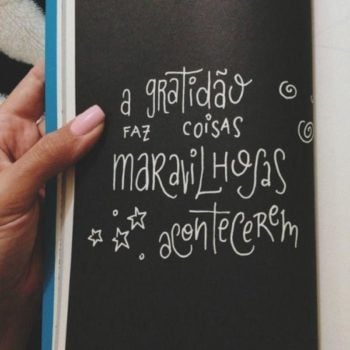 a gratidão
faz coisas
maravilhosas
acontecerem